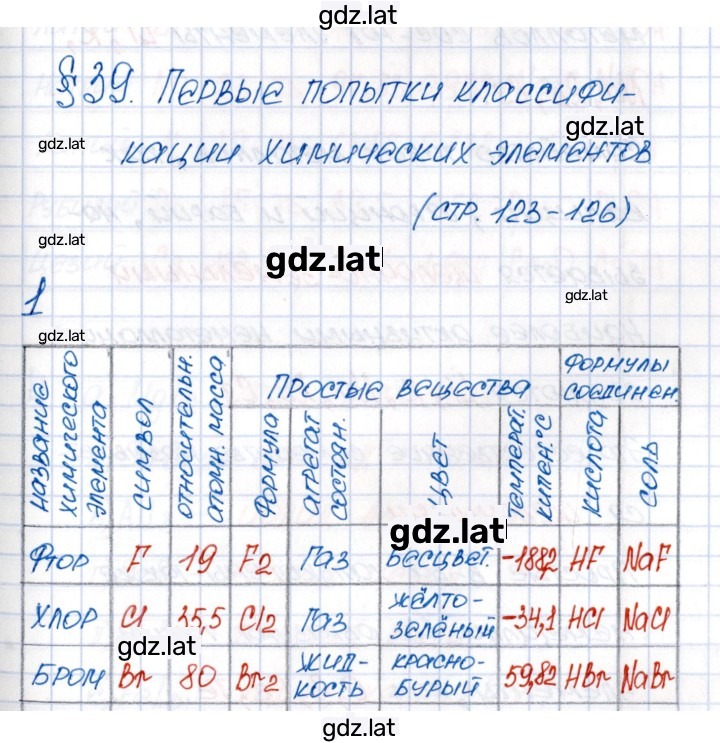 gdz.lat
§39. Первые попытки классифи-
gdz.lat
gdz.lat
кации химических элементов
(стр. 123-126)
gdz.lat
gdz.lat
gdz.lat
1
gdz.lat
Название химического элемента | Символ | Относительн. атомн. масса | Простые вещества | Формулы соединен.
Формула | Агрегат состоян. | Цвет | Температ. кипен. °C | Кислота | Соль
gdz.lat
Фтор F 19 F2 Газ Бесцвет. -188,2 HF NaF
Хлор Cl 35,5 Cl2 Газ Жёлто-зелёный -34,1 HCl NaCl
gdz.lat
Бром Br 80 Br2 Жид-кость Красно-бурый 59,82 HBr NaBr
gdz.lat